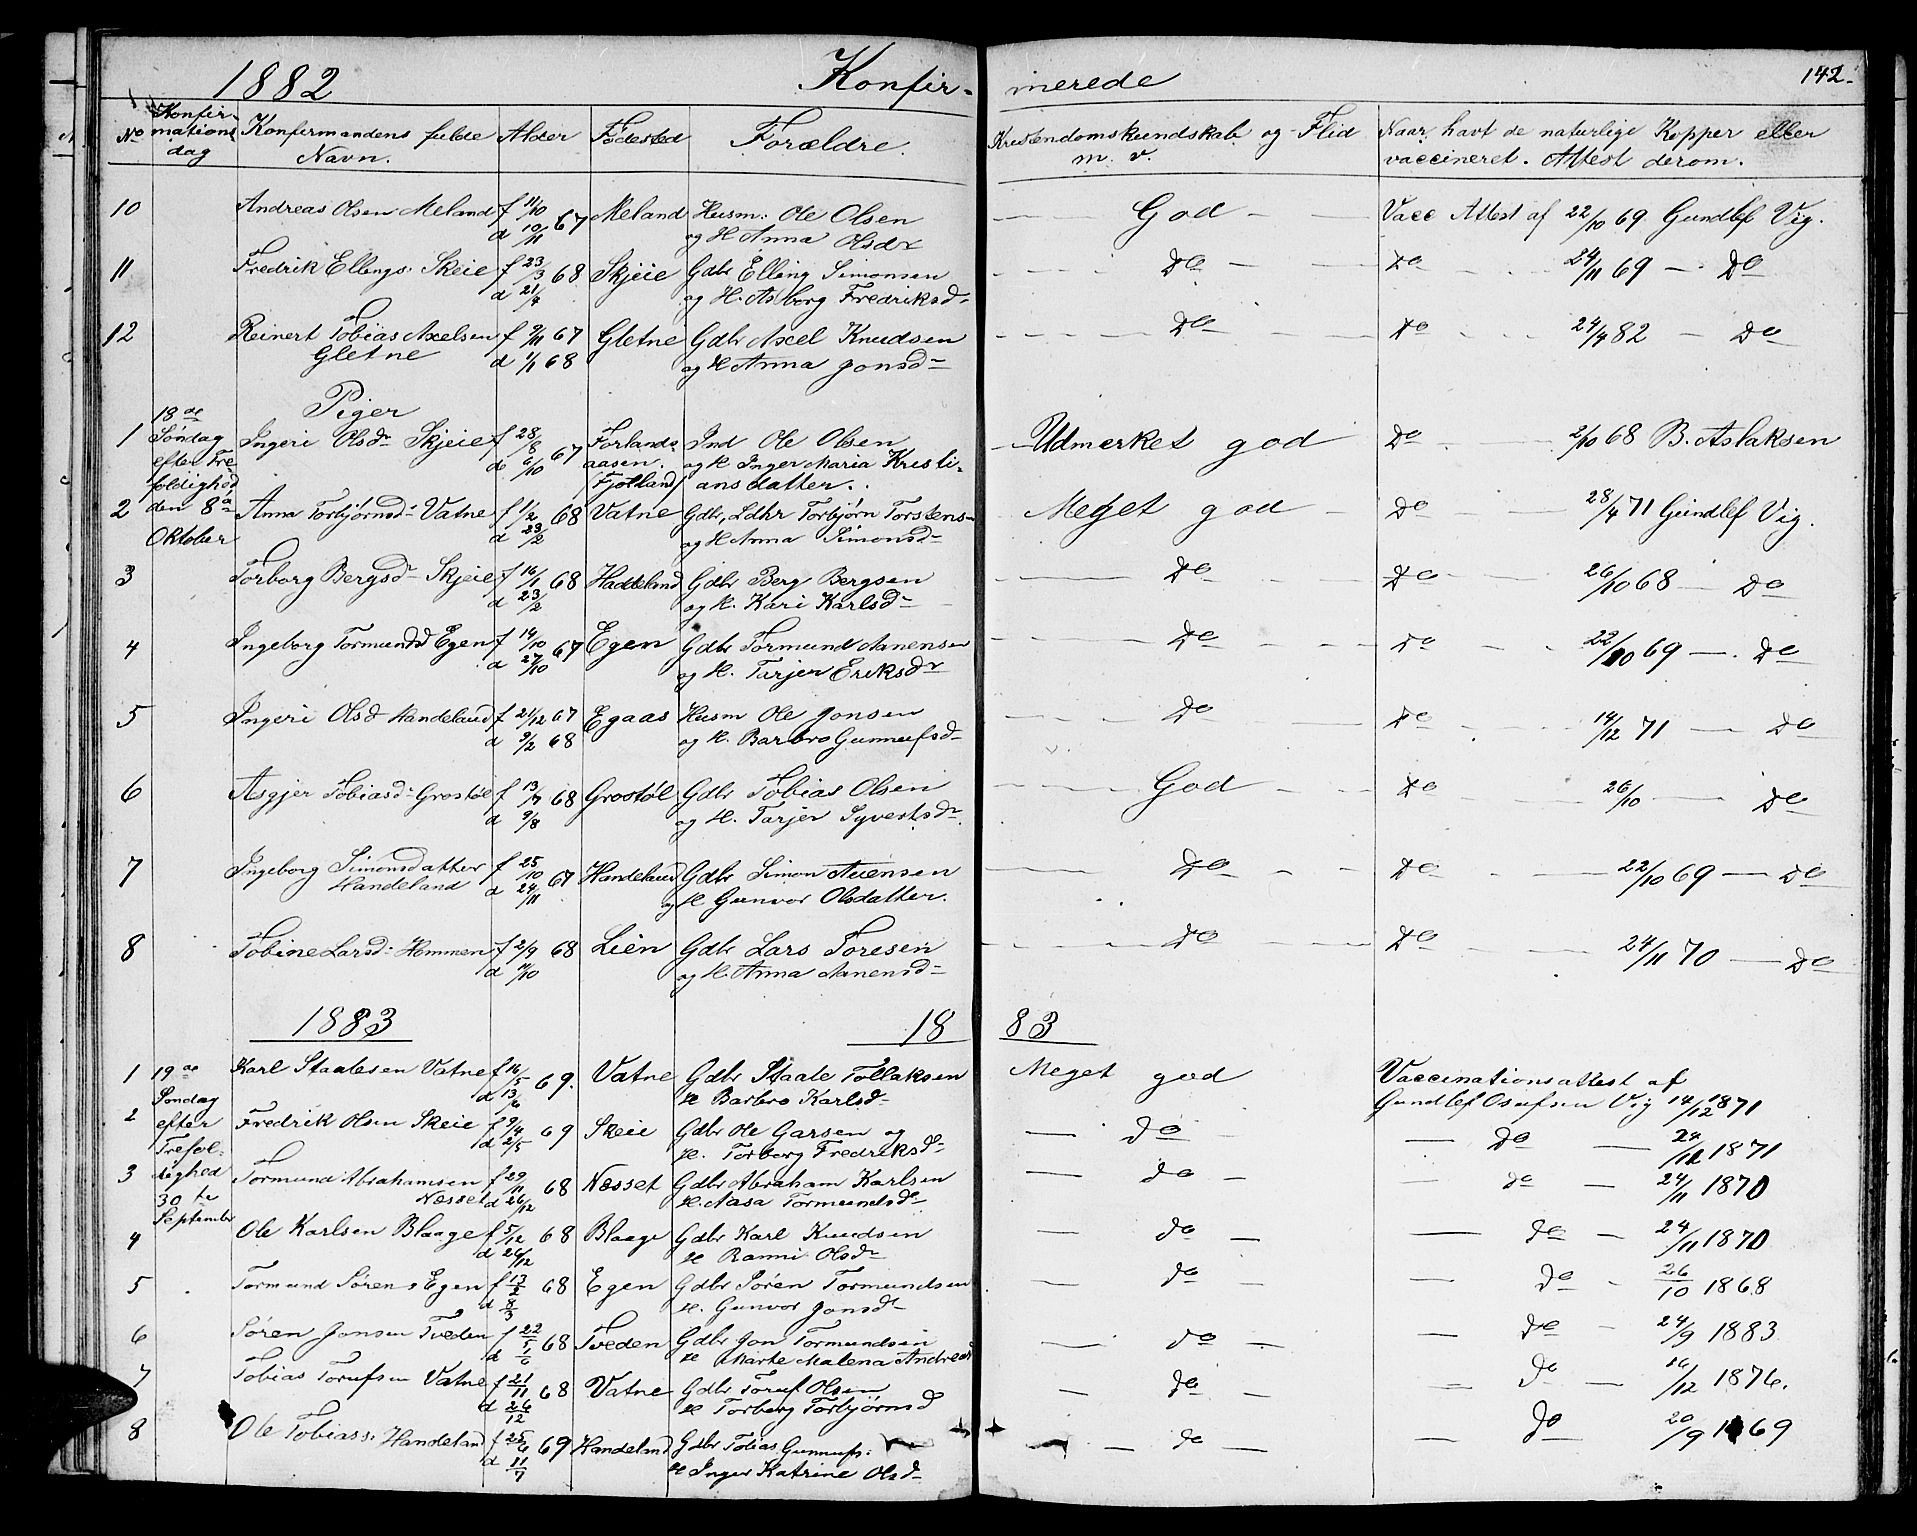 1882 Konfir- merede 142.
No Konfir-mations dag Konfirmandens fulde Navn. Alder Fødested Forældre Kristendomskundskab og Flid m. v. Naar havt de naturlige Kopper eller vaccineret. Attest derom.
10 Andreas Olsen Meland f 11/10 67 Meland Husm. Ole Olsen — God — Vacc Attest af 22/10 69 Gundlef Vig.
d 10/11 og H Anna Olsdr
11 Fredrik Ellings. Skeie f 23/3 68 Skjeie Gdbr Elling Simonsen Do Do 24/11 69 — Do
d 21/4 og H. Asborg Fredriksd
12 Reinert Tobias Axelsen f 9/11 67 Gletne Gdbr Axel Knudsen Do Do 24/4 82 — Do
Gletne d 1/1 68 og H Anna Jonsd
18de Piger
1 Søndag Ingeri Olsdr Skjeie f 28/8 67 Forlands Ind Ole Olsen — Udmerket god Do 2/10 68 B. Aslaksen
efter Tre d 6/10 aasen. og H. Inger Maria Kristi-
foldighed (Fjotland) ansdatter.
2 den 8de Anna Torbjørnsd Vatne f 1/2 68 Vatne Gdbr, Ldhr Torbjørn Torstens- Meget god — Do 28/4 71 Gundlef Vig.
Oktober d 23/2 og H Anna Simonsd
3 Torborg Bergsd Skjeie f 16/1 68 Haddeland Gdbr Berg Bergsen Do Do 26/10 68 — Do
d 23/2 og H. Kari Karlsd
4 Ingeborg Tormundsd Egen f 14/10 67 Egen Gdbr Tormund Aanensen Do Do 22/10 69 — Do
d 27/10 og H. Tarjer Eriksdr
5 Ingeri Olsd Handeland f 21/12 67 Egaas Husm Ole Jonsen Do Do 14/12 71 — Do
d 9/2 68 og H. Barbro Gunnufsd
6 Asgjer Tobiasd Grostøl f 13/7 68 Grostøl Gdbr Tobias Olsen God Do 26/10 — Do
d 9/8 og H. Tarjer Syvertsdr
7 Ingeborg Simonsdatter f 25/10 67 Handeland Gdbr Simon Auensen Do Do 22/10 69 — Do
Handeland d 24/11 og H Gunvor Olsdatter.
8 Tobine Larsd Hommen f 2/9 68 Lien Gdbr Lars Toresen Do Do 24/11 70 — Do
d 11/10 og H. Anna Aanensd
1883 18 83
1 19de Karl Staalesen Vatne f 16/5 69. Vatne Gdbr Staale Tollaksen Meget god Vaccinationsattest af
Søndag d 13/6 H Barbro Karlsd Gundlef Osufsen Vig 14/12 1871
2 efter Fredrik Olsen Skeie f 9/4 69 Skeie Gdbr Ole Garsen og — do — — Do — 24/12 1871
Trefol- d 2/5 H. Torborg Fredriksd
3 dighed Tormund Abrahamsen f 29/11 68 Næsset Gdbr Abraham Karlsen — do — — do — 24/11 1870
30te Næsset d 26/12 H. Aasa Tormundsd
September
4 Ole Karlsen Blaage f 5/12 68 Blaage Gdbr Karl Knudsen — do — — do — 24/11 1870
d 26/12 H Ranni Olsdr
5 Tormund Sørens Egen f 13/2 68 Egen Gdbr Søren Tormundsen — do — — do — 26/10 1868
d 8/3 H. Gunvor Jonsd
6 Søren Jonsen Tveden f 22/5 68 Tveden Gdbr Jon Tormundsen — do — — do — 24/9 1883
d 1/6 H Marte Malena Andreasd
7 Tobias Torufsen Vatne f 21/11 68 Vatne Gdbr Toruf Olsen — do — — do — 16/12 1876.
d 26/12 H Torborg Torbjørnsd
8 Ole Tobiass. Handeland f 25/6 69 Handeland Gdbr Tobias Gunnufs. — do — — do — 20/9 1869
d 11/7 H Inger Katrine Olsd